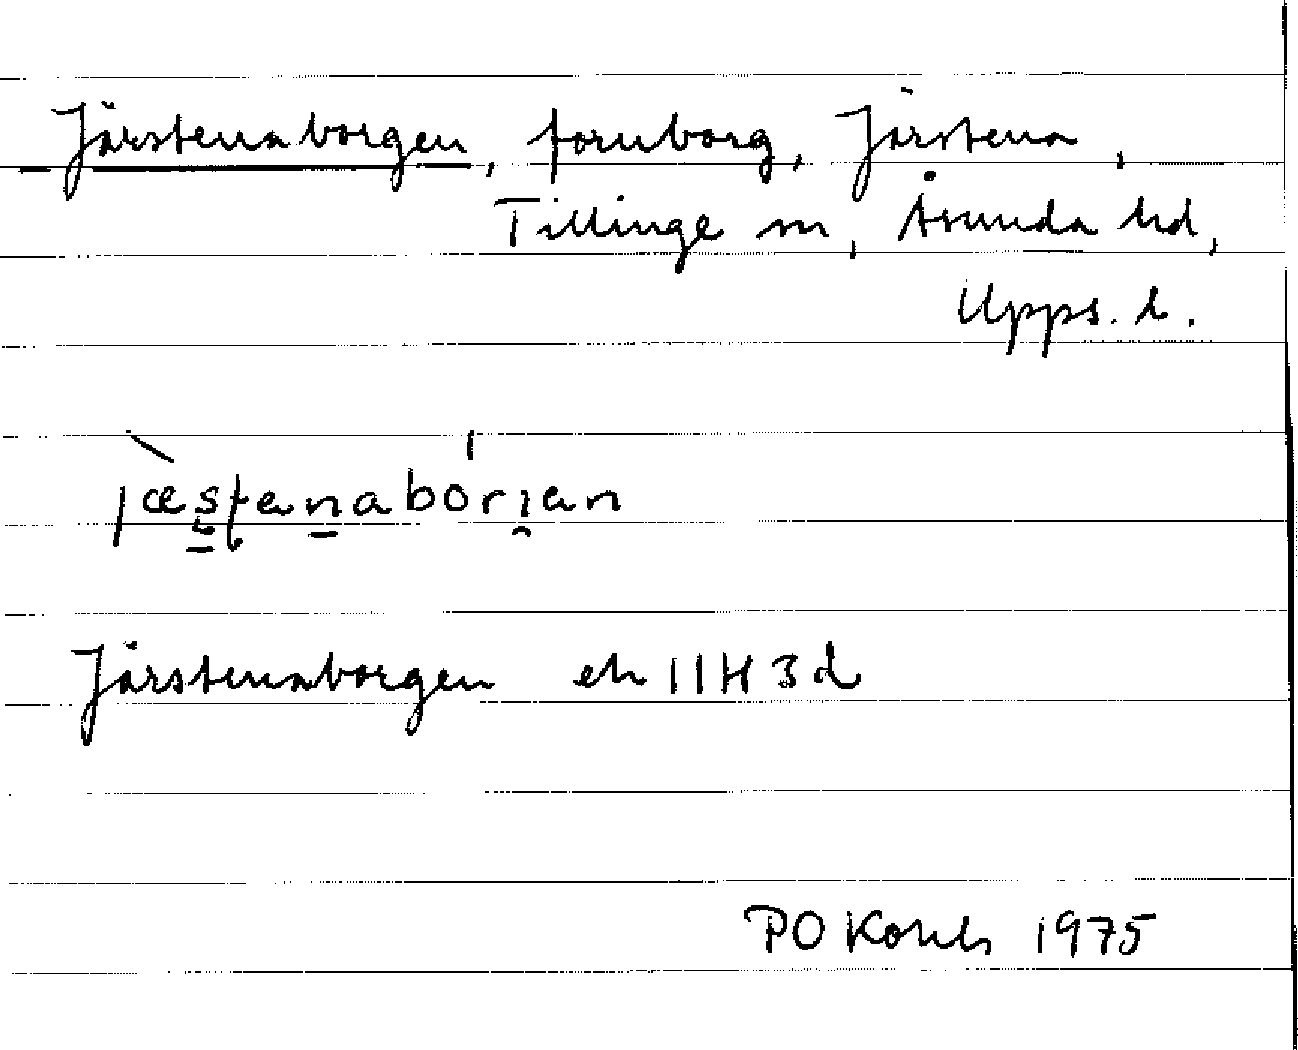 Järstenaborgen, fornborg, Järstena,
Tillinge sn, Åsunda hd,
Upps. l.
jæstenabórjan
Järstenaborgen ek 11H 3d
PO 1975